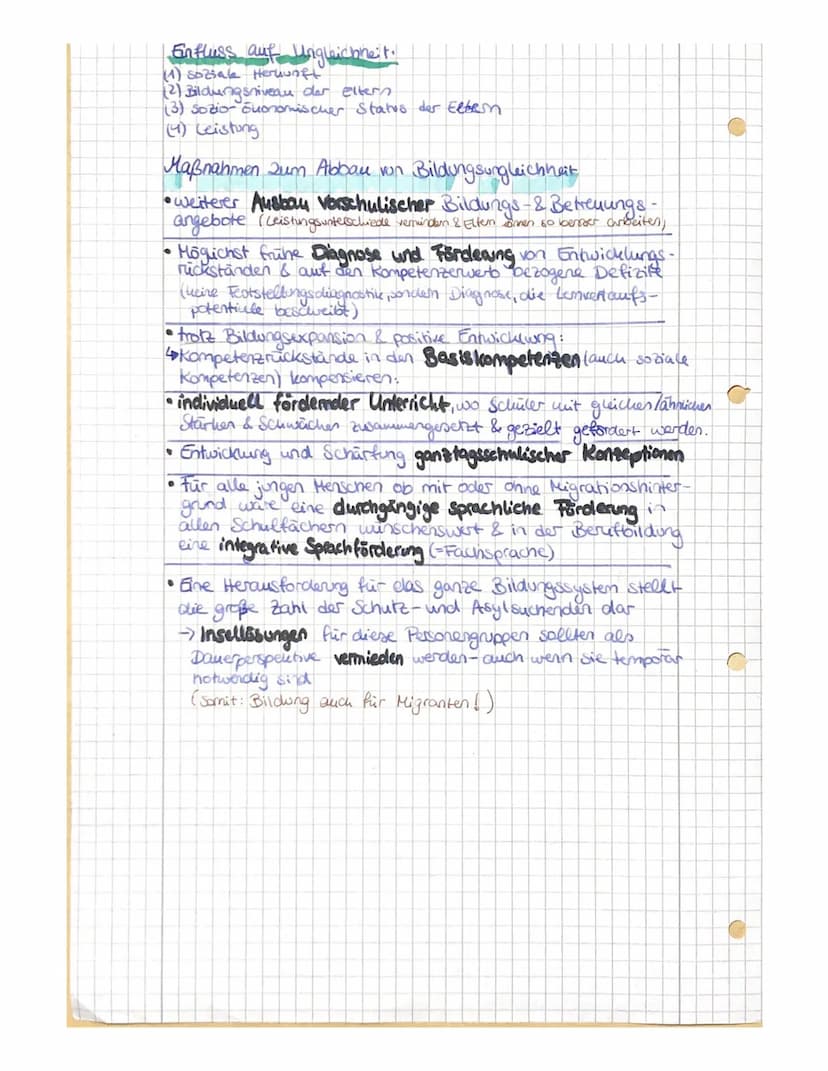 Einfluss auf Ungleichheit:
(1) soziale Herkunft
(2) Bildungsniveau der Eltern
(3) Sozio-ökonomischer Status der Eltern
(4) Leistung
Maßnahmen zum Abbau von Bildungsungleichheit
• weiterer Ausbau Vorschulischer Bildungs- & Betreuungs-
angebote (Leistungsunterschiede vermindern & Eltern können so besser arbeiten)
• Möglichst frühe Diagnose und Förderung von Entwicklungs-
rückständen & auf den Kompetenzerwerb bezogene Defizite
(keine Feststellungsdiagnostik, sondern Diagnose, die Lernverlaufs-
potentiale beschreibt)
• trotz Bildungsexpansion & positive Entwicklung:
↳ Kompetenzrückstände in den Basiskompetenzen (auch soziale
Kompetenzen) kompensieren.
• individuell fördernder Unterricht, wo Schüler mit gleichen/ähnlichen
Stärken & Schwächen zusammengesetzt & gezielt gefördert werden.
• Entwicklung und Schärfung ganztagsschulischer Konzeptionen
• Für alle jungen Menschen ob mit oder ohne Migrationshinter-
grund wäre eine durchgängige sprachliche Förderung in
allen Schulfächern wünschenswert & in der Berufbildung
eine integrative Sprachförderung (=Fachsprache)
• Eine Herausforderung für das ganze Bildungssystem stellt
die große Zahl der Schutz- und Asylsuchenden dar
→ Insellösungen für diese Personengruppen sollten als
Dauerperspektive vermieden werden - auch wenn sie temporär
notwendig sind
(somit: Bildung auch für Migranten!)